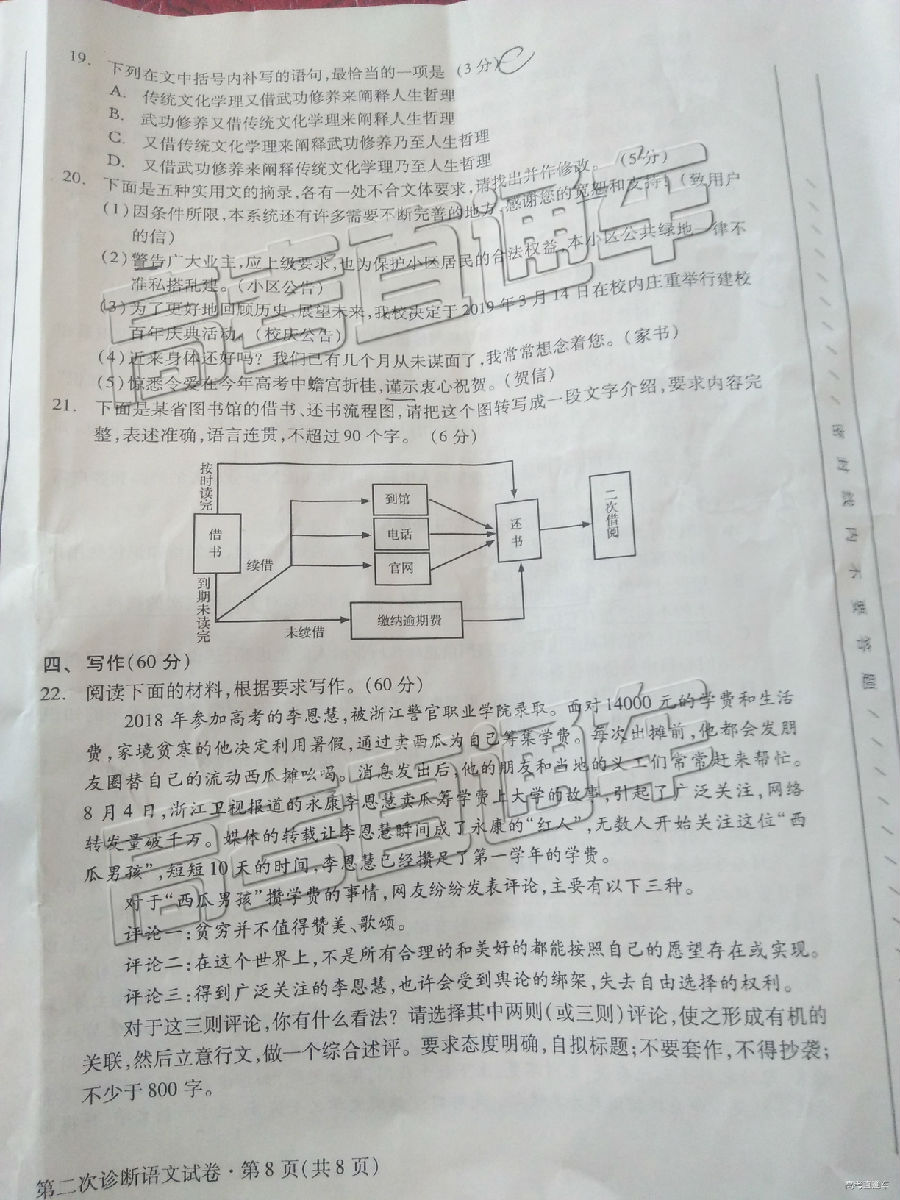 19. 下列在文中括号内补写的语句,最恰当的一项是 (3分) C
A. 传统文化学理又借武功修养来阐释人生哲理
B. 武功修养又借传统文化学理来阐释人生哲理
C. 又借传统文化学理来阐释武功修养乃至人生哲理
D. 又借武功修养来阐释传统文化学理乃至人生哲理
20. 下面是五种实用文的摘录,各有一处不合文体要求,请找出并作修改。 (5分)
(1)因条件所限,本系统还有许多需要不断完善的地方,感谢您的宽宥和支持! (致用户
的信)
(2)警告广大业主,应上级要求,也为保护小区居民的合法权益,本小区公共绿地一律不
准私搭乱建。(小区公告)
(3)为了更好地回顾历史、展望未来,我校决定于2019年3月14日在校内庄重举行建校
百年庆典活动。(校庆公告)
(4)近来身体还好吗? 我们已有几个月从未谋面了,我常常想念着您。(家书)
(5)惊悉令爱在今年高考中蟾宫折桂,谨示衷心祝贺。(贺信)
21. 下面是某省图书馆的借书、还书流程图,请把这个图转写成一段文字介绍,要求内容完
整,表述准确,语言连贯,不超过90个字。 (6分)
按时读完
借书
到期未读完
续借
到馆
电话
官网
未续借
缴纳逾期费
还书
二次借阅
四、写作(60分)
22. 阅读下面的材料,根据要求写作。(60分)
2018年参加高考的李恩慧,被浙江警官职业学院录取。面对14000元的学费和生活
费,家境贫寒的他决定利用暑假,通过卖西瓜为自己筹集学费。每次出摊前,他都会发朋
友圈替自己的流动西瓜摊吆喝。消息发出后,他的朋友和当地的义工们常常赶来帮忙。
8月4日,浙江卫视报道的永康李恩慧卖瓜筹学费上大学的故事,引起了广泛关注,网络
转发量破千万。媒体的转载让李恩慧瞬间成了永康的“红人”,无数人开始关注这位“西
瓜男孩”,短短10天的时间,李恩慧已经攒足了第一学年的学费。
对于“西瓜男孩”攒学费的事情,网友纷纷发表评论,主要有以下三种。
评论一:贫穷并不值得赞美、歌颂。
评论二:在这个世界上,不是所有合理的和美好的都能按照自己的愿望存在或实现。
评论三:得到广泛关注的李恩慧,也许会受到舆论的绑架,失去自由选择的权利。
对于这三则评论,你有什么看法? 请选择其中两则(或三则)评论,使之形成有机的
关联,然后立意行文,做一个综合述评。要求态度明确,自拟标题;不要套作,不得抄袭;
不少于800字。
第二次诊断语文试卷·第8页(共8页)
密封线内不要答题
高考直通车
高考直通车
高考直通车